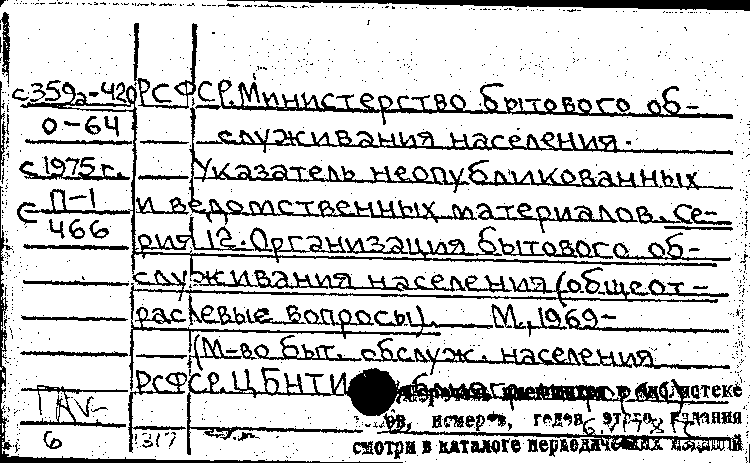 с359а-420 РСФСР. Министерство бытового об-
о-64 служивания населения.
с 1975 г. Указатель неопубликованных
с П-1 и ведомственных материалов. Се-
466 рия 12. Организация бытового об-
служивания населения (общеот-
раслевые вопросы). М., 1969-
(М-во быт. обслуж. населения
РСФСР. ЦБНТИ
имеющихся в библиотеке
номеров, годов этого издания
6 1317 смотри в каталоге периодических изданий